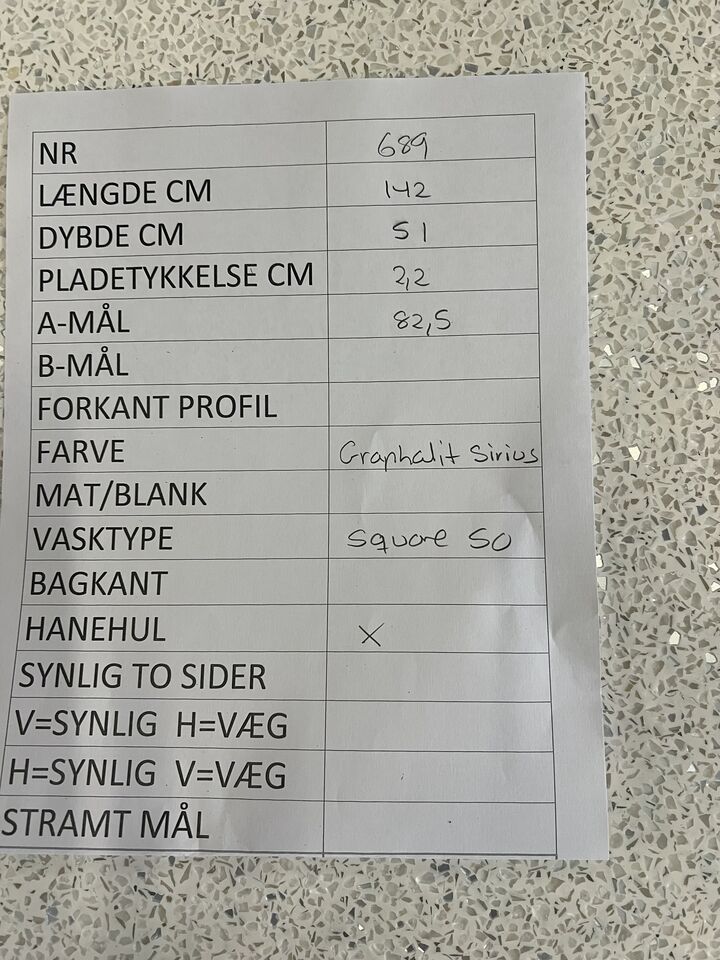 NR 689
LÆNGDE CM 142
DYBDE CM 51
PLADETYKKELSE CM 2,2
A-MÅL 82,5
B-MÅL
FORKANT PROFIL
FARVE Graphalit Sirius
MAT/BLANK
VASKTYPE Square 50
BAGKANT
HANEHUL X
SYNLIG TO SIDER
V=SYNLIG H=VÆG
H=SYNLIG V=VÆG
STRAMT MÅL